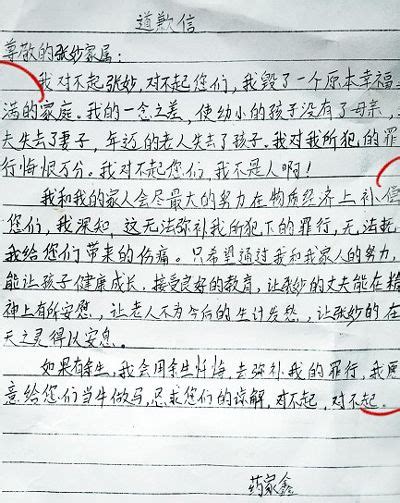 道歉信
尊敬的张妙家属：
我对不起张妙，对不起您们，我毁了一个原本幸福
满的家庭。我的一念之差，使幼小的孩子没有了母亲，
夫失去了妻子，年迈的老人失去了孩子。我对我所犯的罪
行悔恨万分。我对不起您们，我不是人啊！
我和我的家人会尽最大的努力在物质经济上补偿
您们，我深知，这无法弥补我所犯下的罪行，无法抚
我给您们带来的伤痛。只希望通过我和我家人的努力，
能让孩子健康成长，接受良好的教育，让张妙的丈夫能在精
神上有所安慰，让老人不为今后的生计发愁，让张妙的在
天之灵得以安息。
如果有余生，我会用余生忏悔，去弥补我的罪行，我愿
意给您们当牛做马，恳求您们的谅解，对不起，对不起。
药家鑫